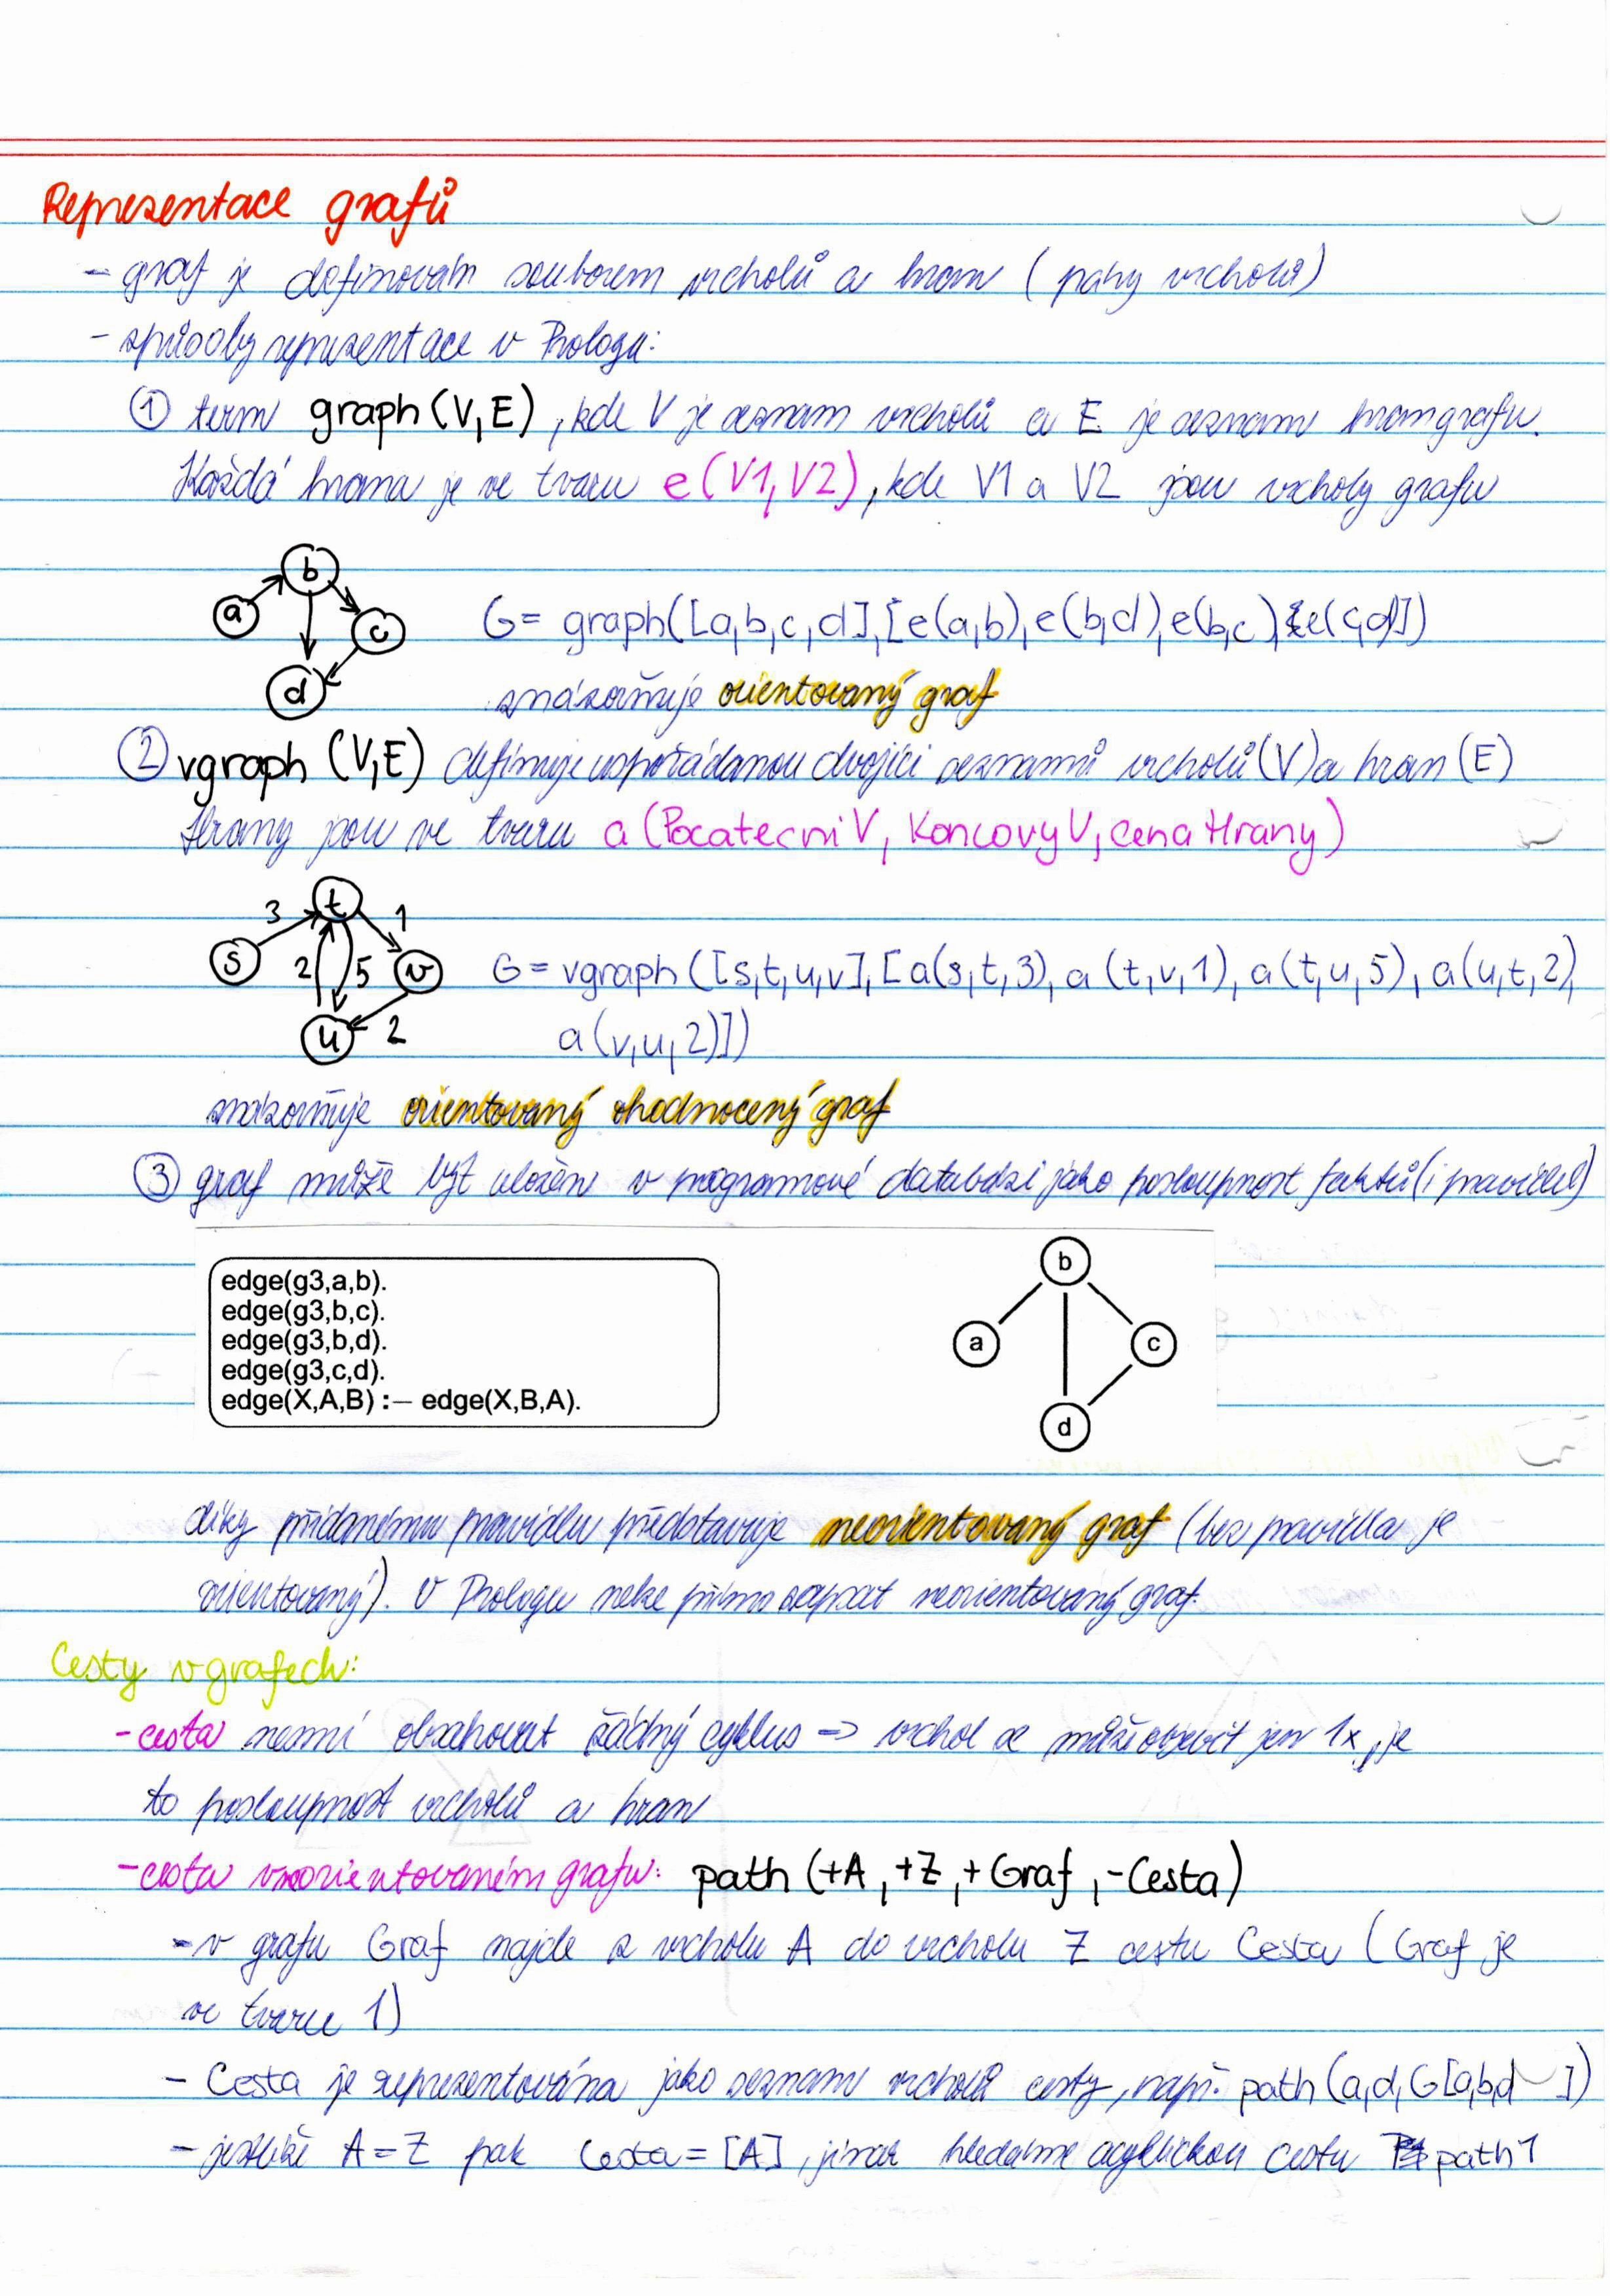 Reprezentace grafů
- graf je definován souborem vrcholů a hran (páry vrcholů)
- způsoby reprezentace v Prologu:
① term graph(V,E), kde V je seznam vrcholů a E je seznam hran grafu.
Každá hrana je ve tvaru e(V1,V2), kde V1 a V2 jsou vrcholy grafu
b
a
c
d
G= graph([a,b,c,d],[e(a,b),e(b,d),e(b,c),e(c,d)])
znázorňuje orientovaný graf
② vgraph (V,E) definuje uspořádanou dvojici seznamů vrcholů (V) a hran (E)
Hrany jsou ve tvaru a (PocatecniV, KoncovyV, cenaHrany)
t
3
1
s
2
5
v
u
2
G = vgraph ([s,t,u,v],[a(s,t,3), a (t,v,1), a(t,u,5), a(u,t,2),
a(v,u,2)])
znázorňuje orientovaný ohodnocený graf
③ graf může být uložen v programové databázi jako posloupnost faktů (i pravidel)
edge(g3,a,b).
edge(g3,b,c).
edge(g3,b,d).
edge(g3,c,d).
edge(X,A,B) :– edge(X,B,A).
b
a
c
d
díky přidanému pravidlu představuje neorientovaný graf (bez pravidla je
orientovaný). V Prologu nelze přímo zapsat neorientovaný graf.
Cesty v grafech:
- cesta nesmí obsahovat žádný cyklus => vrchol se může objevit jen 1x, je
to posloupnost vrcholů a hran
- cesta v neorientovaném grafu: path (+A,+Z,+Graf,-Cesta)
- v grafu Graf najde z vrcholu A do vrcholu Z cestu Cesta (Graf je
ve tvaru 1)
- Cesta je reprezentována jako seznam vrcholů cesty, např. path(a,d,G[a,b,d])
- jestliže A=Z pak Cesta=[A], jinak hledáme acyklickou cestu path1